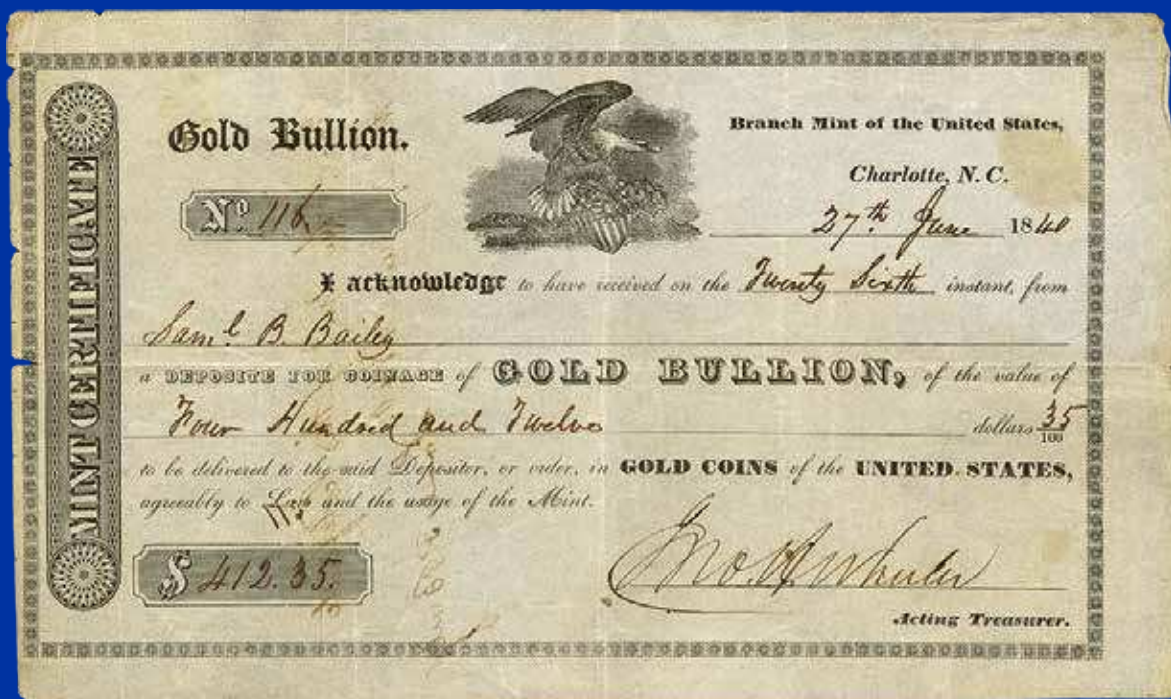 MINT CERTIFICATE
Gold Bullion.
Branch Mint of the United States,
Charlotte, N. C.
No 116
27th June 1840
I acknowledge to have received on the Twenty Sixth instant, from
Saml B. Bailey
a DEPOSITE FOR COINAGE of GOLD BULLION, of the value of
Four Hundred and Twelve dollars 35/100
to be delivered to the said Depositor, or order, in GOLD COINS of the UNITED STATES,
agreeably to Law and the usage of the Mint.
$ 412.35.
Jno. H. Wheeler
Acting Treasurer.